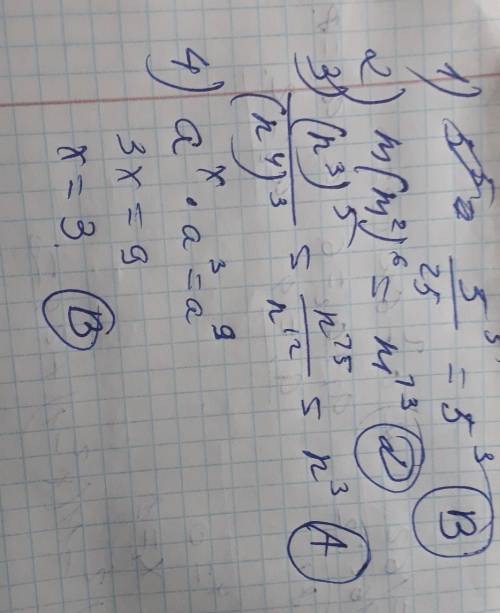 1) 5⁵/25 = 5³ (B)
2) n(n²)⁶ = n¹³ (2)
3) (n³)⁵/(n⁴)³ = n¹⁵/n¹² = n³ (A)
4) a^x · a³ = a⁹
3x = 9
x = 3. (B)